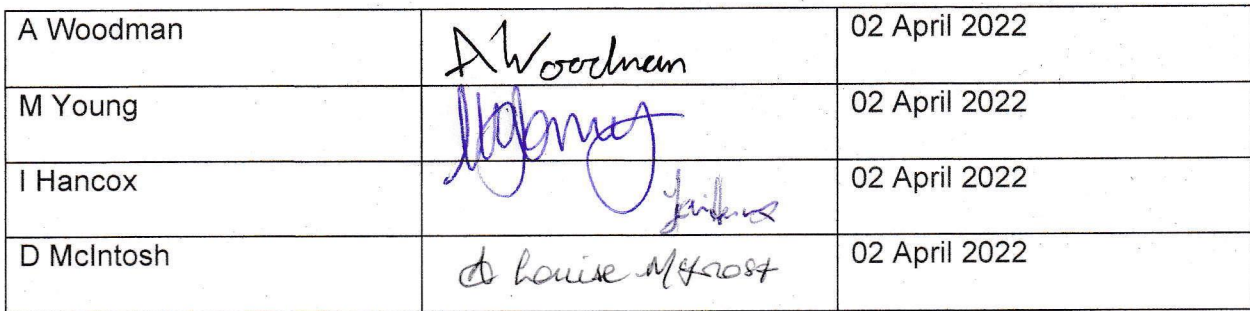 A Woodman AWoodman 02 April 2022
M Young 02 April 2022
I Hancox 02 April 2022
D McIntosh Louise 02 April 2022